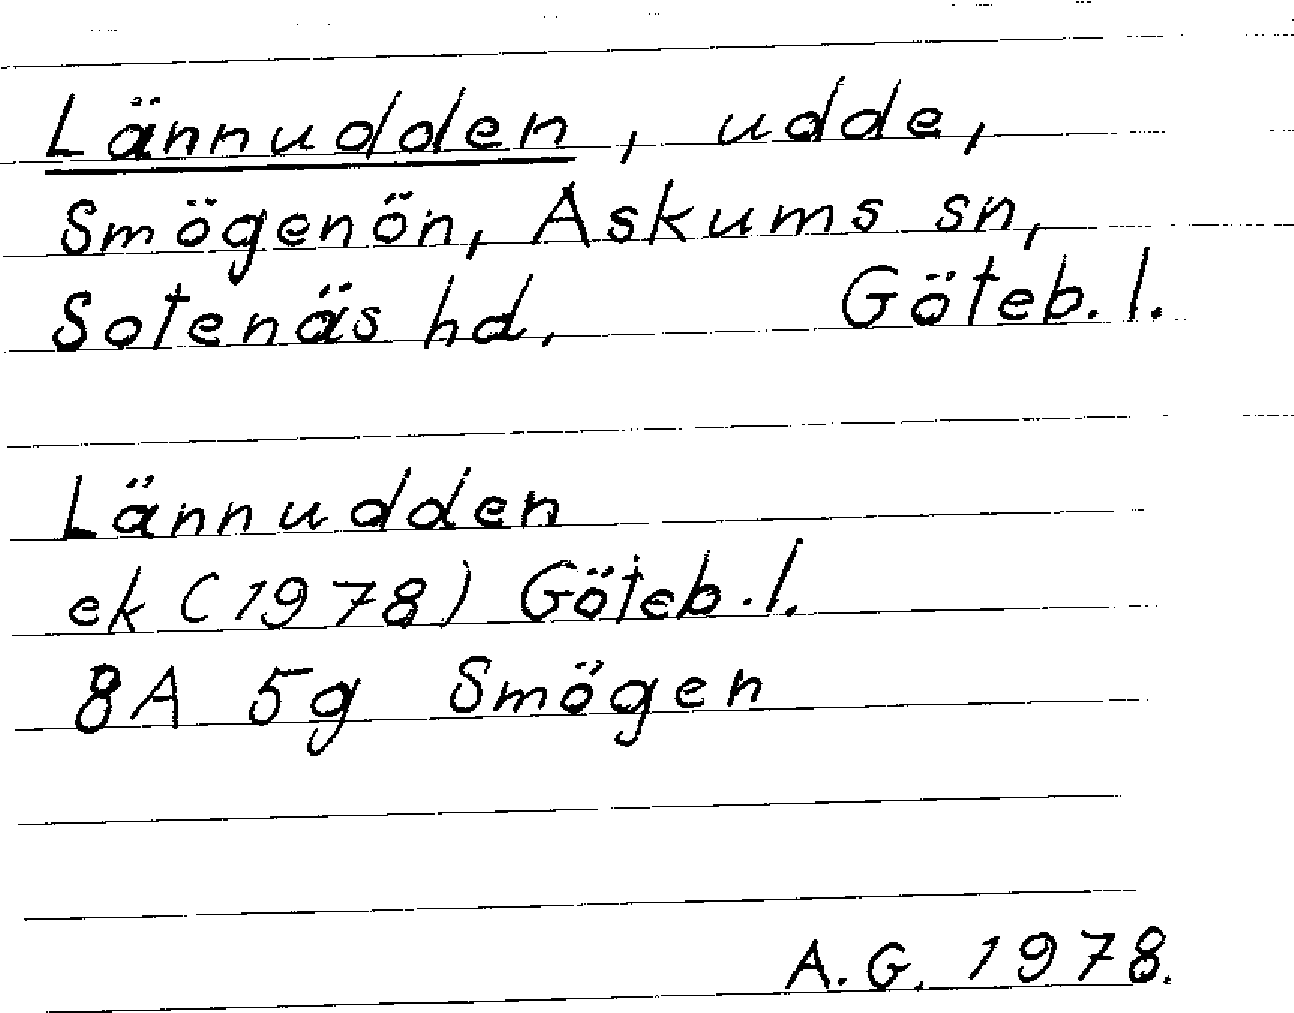 Lännudden, udde,
Smögenön, Askums sn,
Sotenäs hd, Göteb. l.
Lännudden
ek (1978) Göteb. l.
8A 5g Smögen
A. G. 1978.